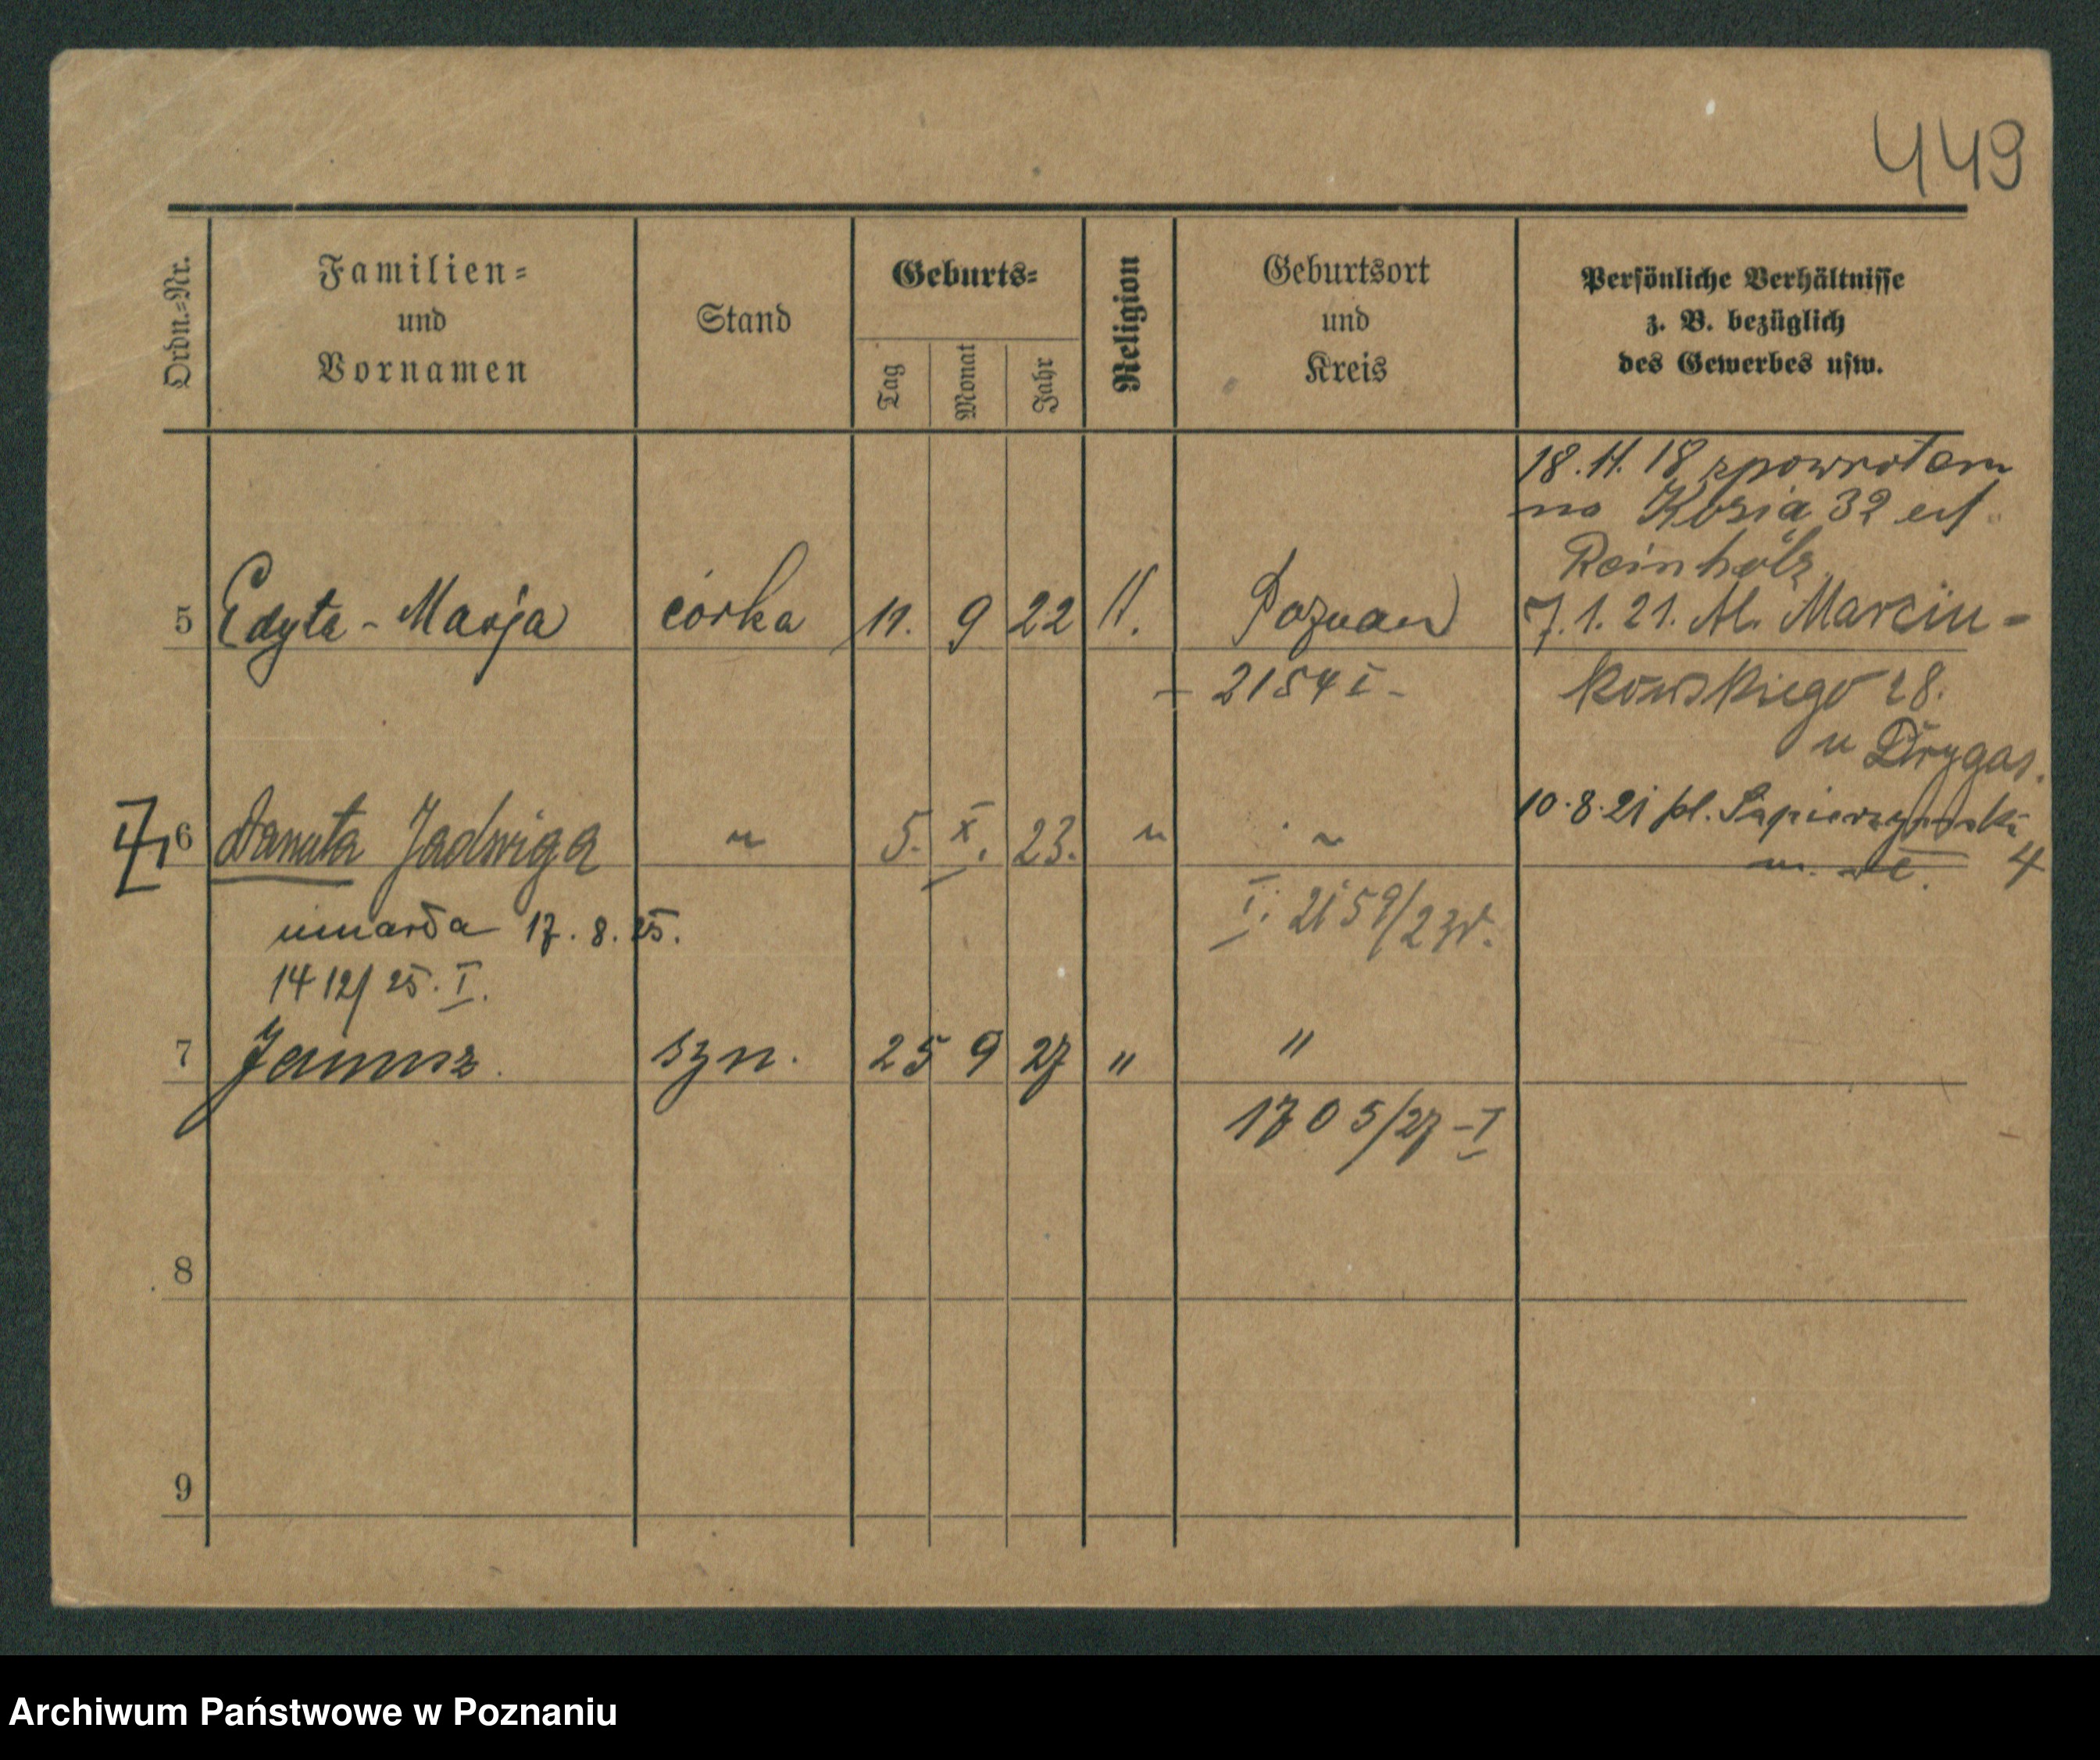 449
Ordn.-Nr.
Familien-
und
Vornamen
Stand
Geburts-
Tag
Monat
Jahr
Religion
Geburtsort
und
Kreis
Persönliche Verhältnisse
z. B. bezüglich
des Gewerbes usw.
18.11.18 zpowrotem
na Kozia 32 
Reinholz
5 Edyta - Marja córka 11. 9 22 Poznań
7.1.21. Al. Marcin-
2154 I -
kowskiego 28.
u Drygas.
6 Danuta Jadwiga " 5. X. 23. " "
10.8.21 pl. Sapieżyński
4
umarła 17.8.25.
I. 2159/23
1412/25. I.
7 Janusz. syn. 25 9 27 " "
1705/27 - I
8
9
Archiwum Państwowe w Poznaniu